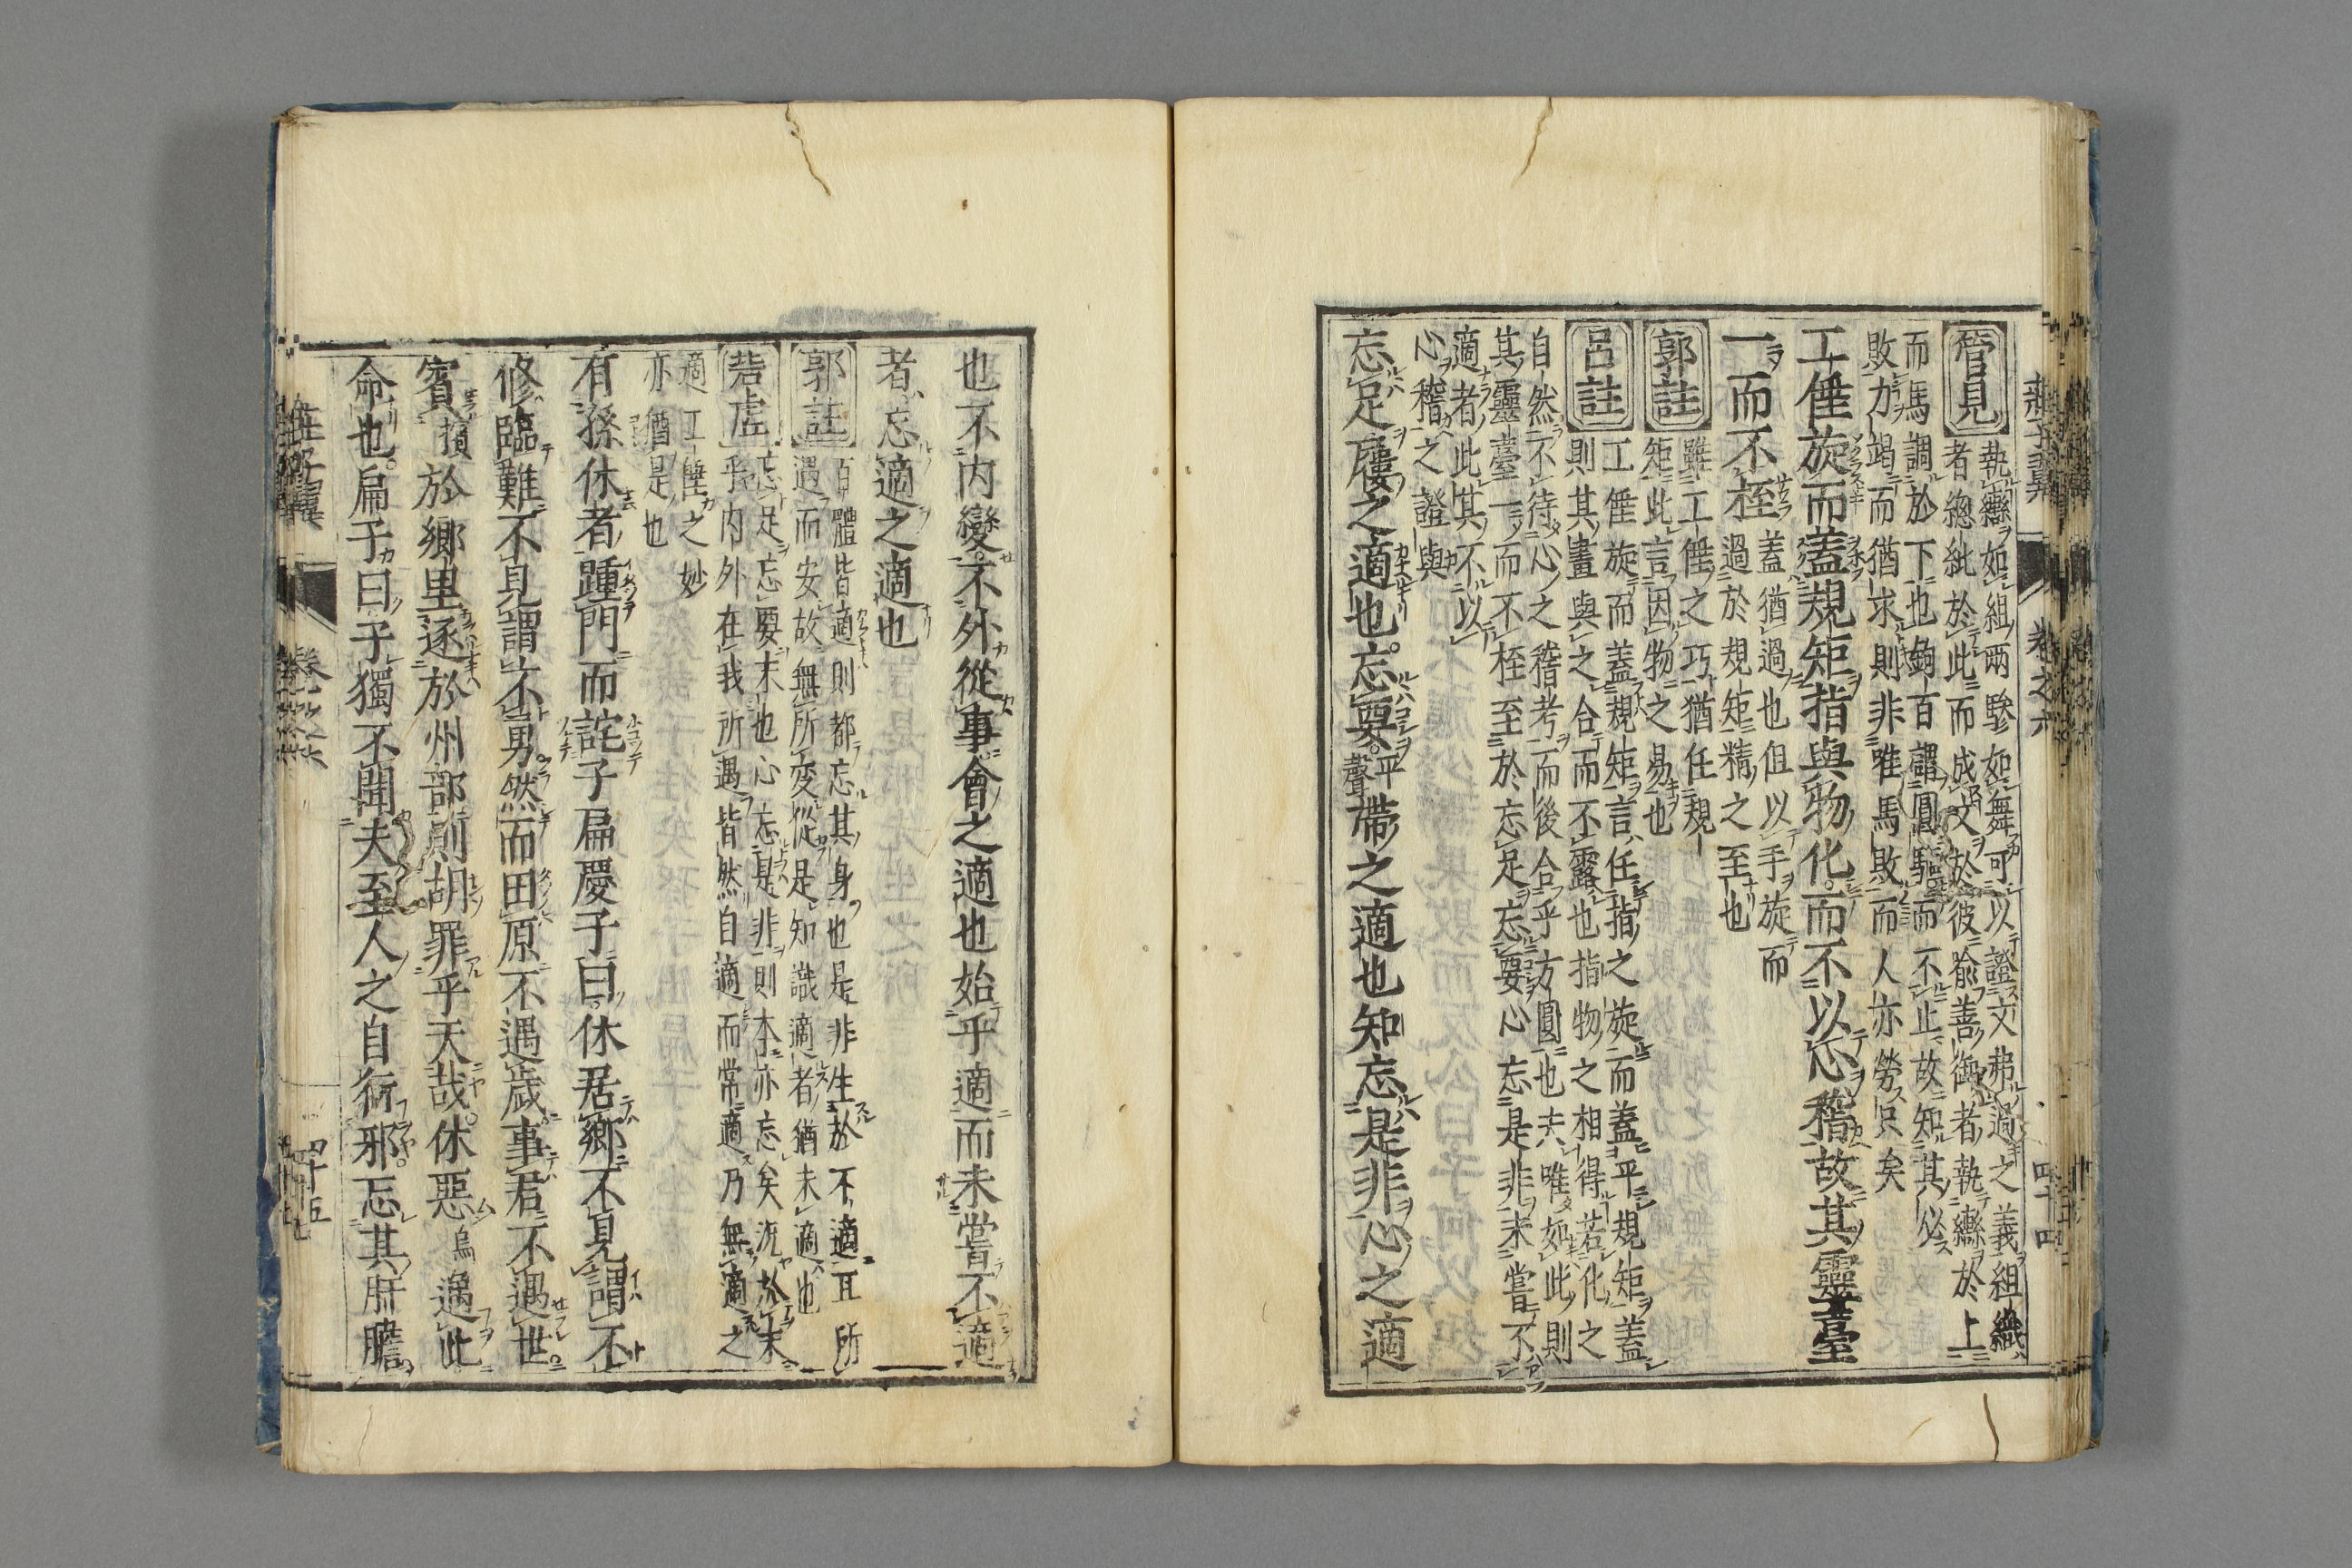 管見
執轡如組兩驂如舞可以證文弗過之義組織
者總紕於此而成文於彼喻善御者執轡於上
而馬調於下也鉤百謂圓驅而不止故知其必
敗力竭而猶求則非唯馬敗而人亦勞只矣
工倕旋而蓋規矩指與物化而不以心稽故其靈臺
一而不桎
蓋猶過也但以手旋而
過於規矩精之至也
郭註
雖工倕之巧猶任規
矩此言因物之易也
呂註
工倕旋而蓋規矩言任指之旋而蓋平規矩蓋
則其畫與之合而不露也指物之相得若化之
自然不待心之稽考而後合乎方圓也夫唯如此則
其靈臺一而不桎至於忘足忘要心忘是非未嘗不
適者此其不以
心稽之證與
忘足屨之適也忘要平聲帶之適也知忘是非心之適
莊子翼 卷之六 四十四
也不内變不外從事會之適也始乎適而未嘗不適
者忘適之適也
郭註
百體皆適則都忘其身也是非生於不適耳所
遇而安故無所変從是知識適者猶未適也
碧虛
忘足忘要末也心忘是非則本亦忘矣況於末
乎内外在我所遇皆然自適而常適乃無適之
適工倕之妙
亦猶是也
有孫休者踵門而詫子扁慶子曰休居鄉不見謂不
修臨難不見謂不勇然而田原不遇歲事君不遇世
賓擯於鄉里逐於州部則胡罪乎天哉休惡烏遇此
命也扁子曰子獨不聞夫至人之自行邪忘其肝膽
莊子翼 卷之六 四十五